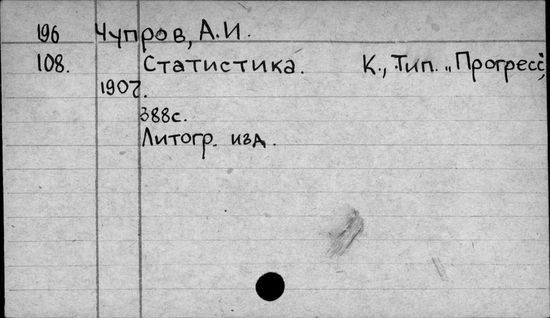 196 Чупров, А.И.
108. Статистика. К., Тип. „Прогресс",
1907.
388с.
Литогр. изд.